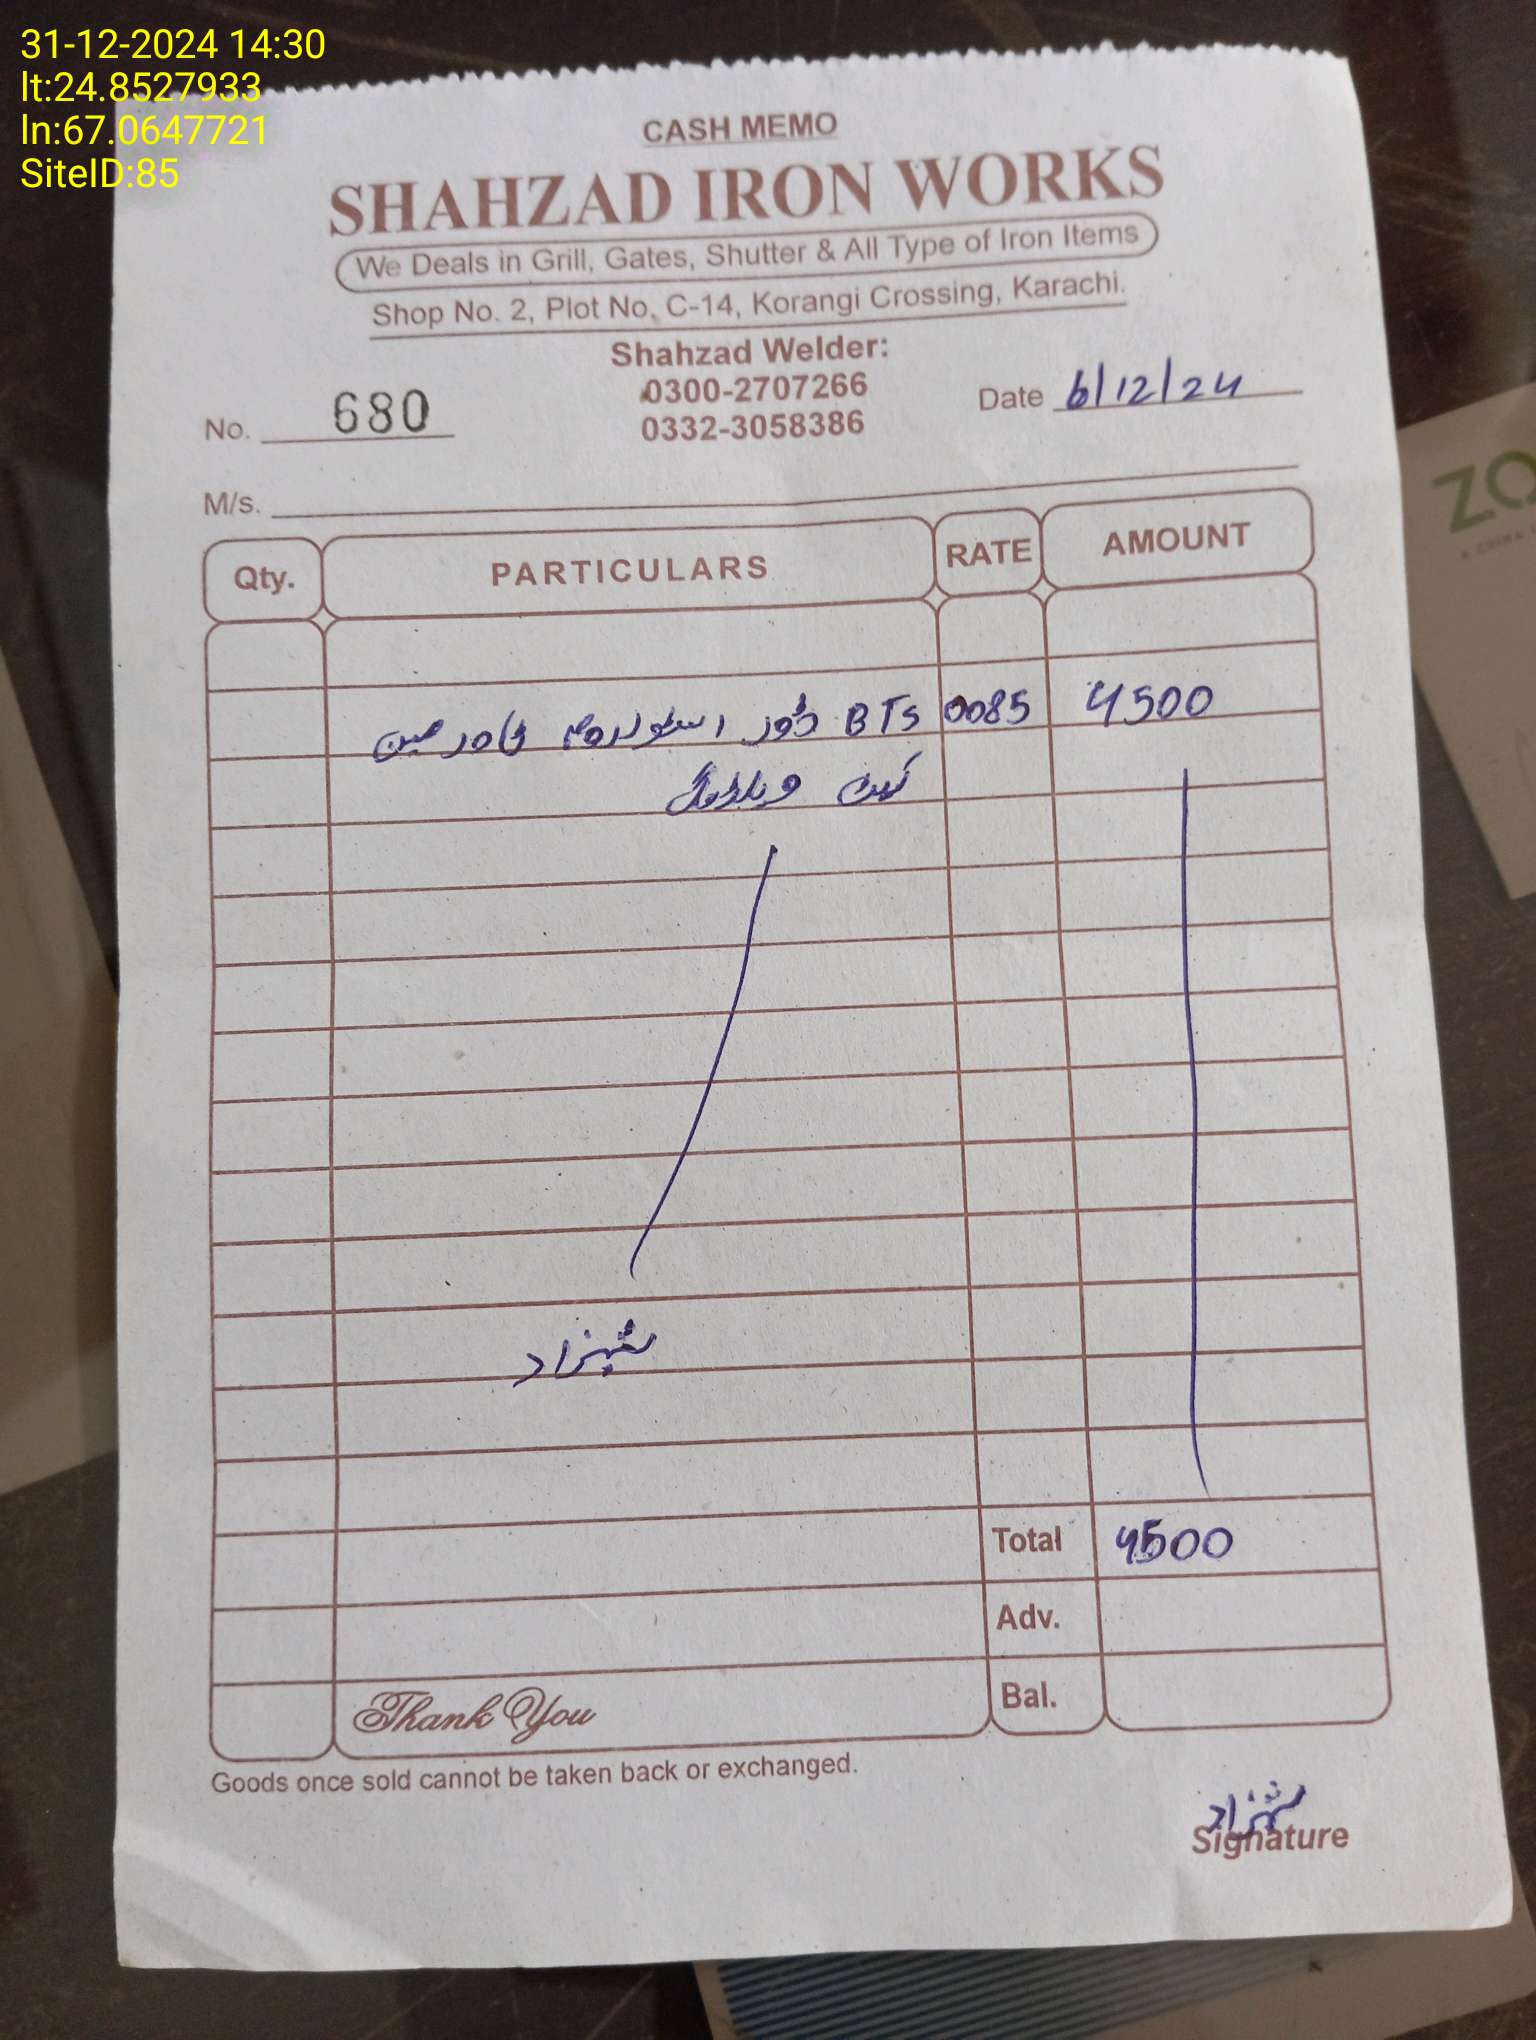 31-12-2024 14:30
lt:24.8527933
ln:67.0647721
SiteID:85
CASH MEMO
SHAHZAD IRON WORKS
We Deals in Grill, Gates, Shutter & All Type of Iron Items
Shop No. 2, Plot No. C-14, Korangi Crossing, Karachi.
Shahzad Welder:
0300-2707266
0332-3058386
No. 680
Date 6/12/24
M/s.
Qty. PARTICULARS RATE AMOUNT
BTs ڈور اسٹور روم اور مین 0085 4500
گیٹ ویلڈنگ
شہزاد
Total 4500
Adv.
Bal.
Thank You
Goods once sold cannot be taken back or exchanged.
شہزاد
Signature